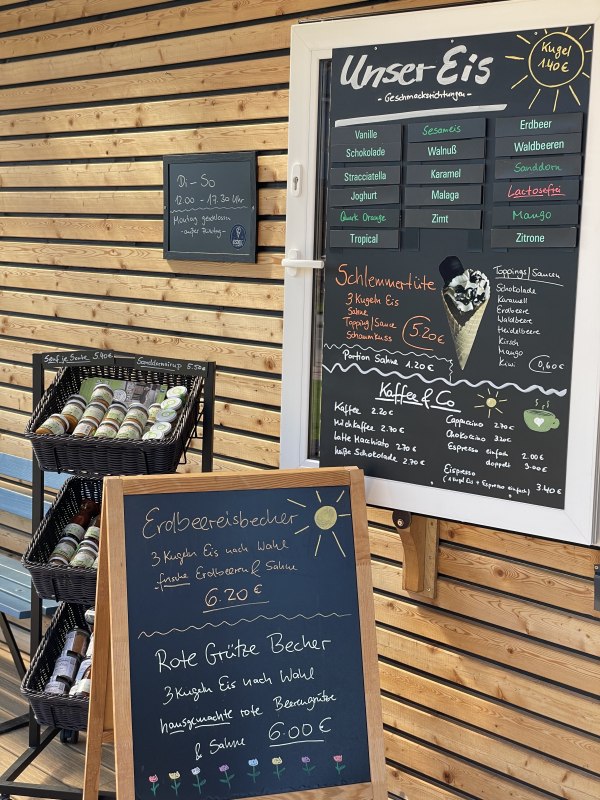 Unser Eis
- Geschmacksrichtungen -
Kugel
1,40€
Vanille
Schokolade
Stracciatella
Joghurt
Quark Orange
Tropical
Sesameis
Walnuß
Karamel
Malaga
Zimt
Erdbeer
Waldbeeren
Sanddorn
Lactosefrei
Mango
Zitrone
Di - So
12.00 - 17.30 Uhr
Montag geschlossen
- außer Feiertag -
Schlemmertüte
3 Kugeln Eis
Sahne
Topping/Sauce
Schaumkuss
5.20€
Portion Sahne 1.20€
Toppings/Saucen
Schokolade
Karamell
Erdbeere
Waldbeere
Heidelbeere
Kirsch
Mango
Kiwi
0,60€
Kaffee & Co
Kaffee 2.20€
Milchkaffee 2.70€
Latte Macchiato 2.70€
heiße Schokolade 2.70€
Cappuccino 2.70€
Chokoccino 3.20€
Espresso einfach 2.00€
doppelt 3.00€
Eispresso 3.40€
(1 Kugel Eis + Espresso einfach)
Senf je Sorte 5.90€
Sanddornsirup 5.50€
Erdbeereisbecher
3 Kugeln Eis nach Wahl
frische Erdbeeren & Sahne
6.20€
Rote Grütze Becher
3 Kugeln Eis nach Wahl
hausgemachte rote Beerengrütze
& Sahne 6.00€